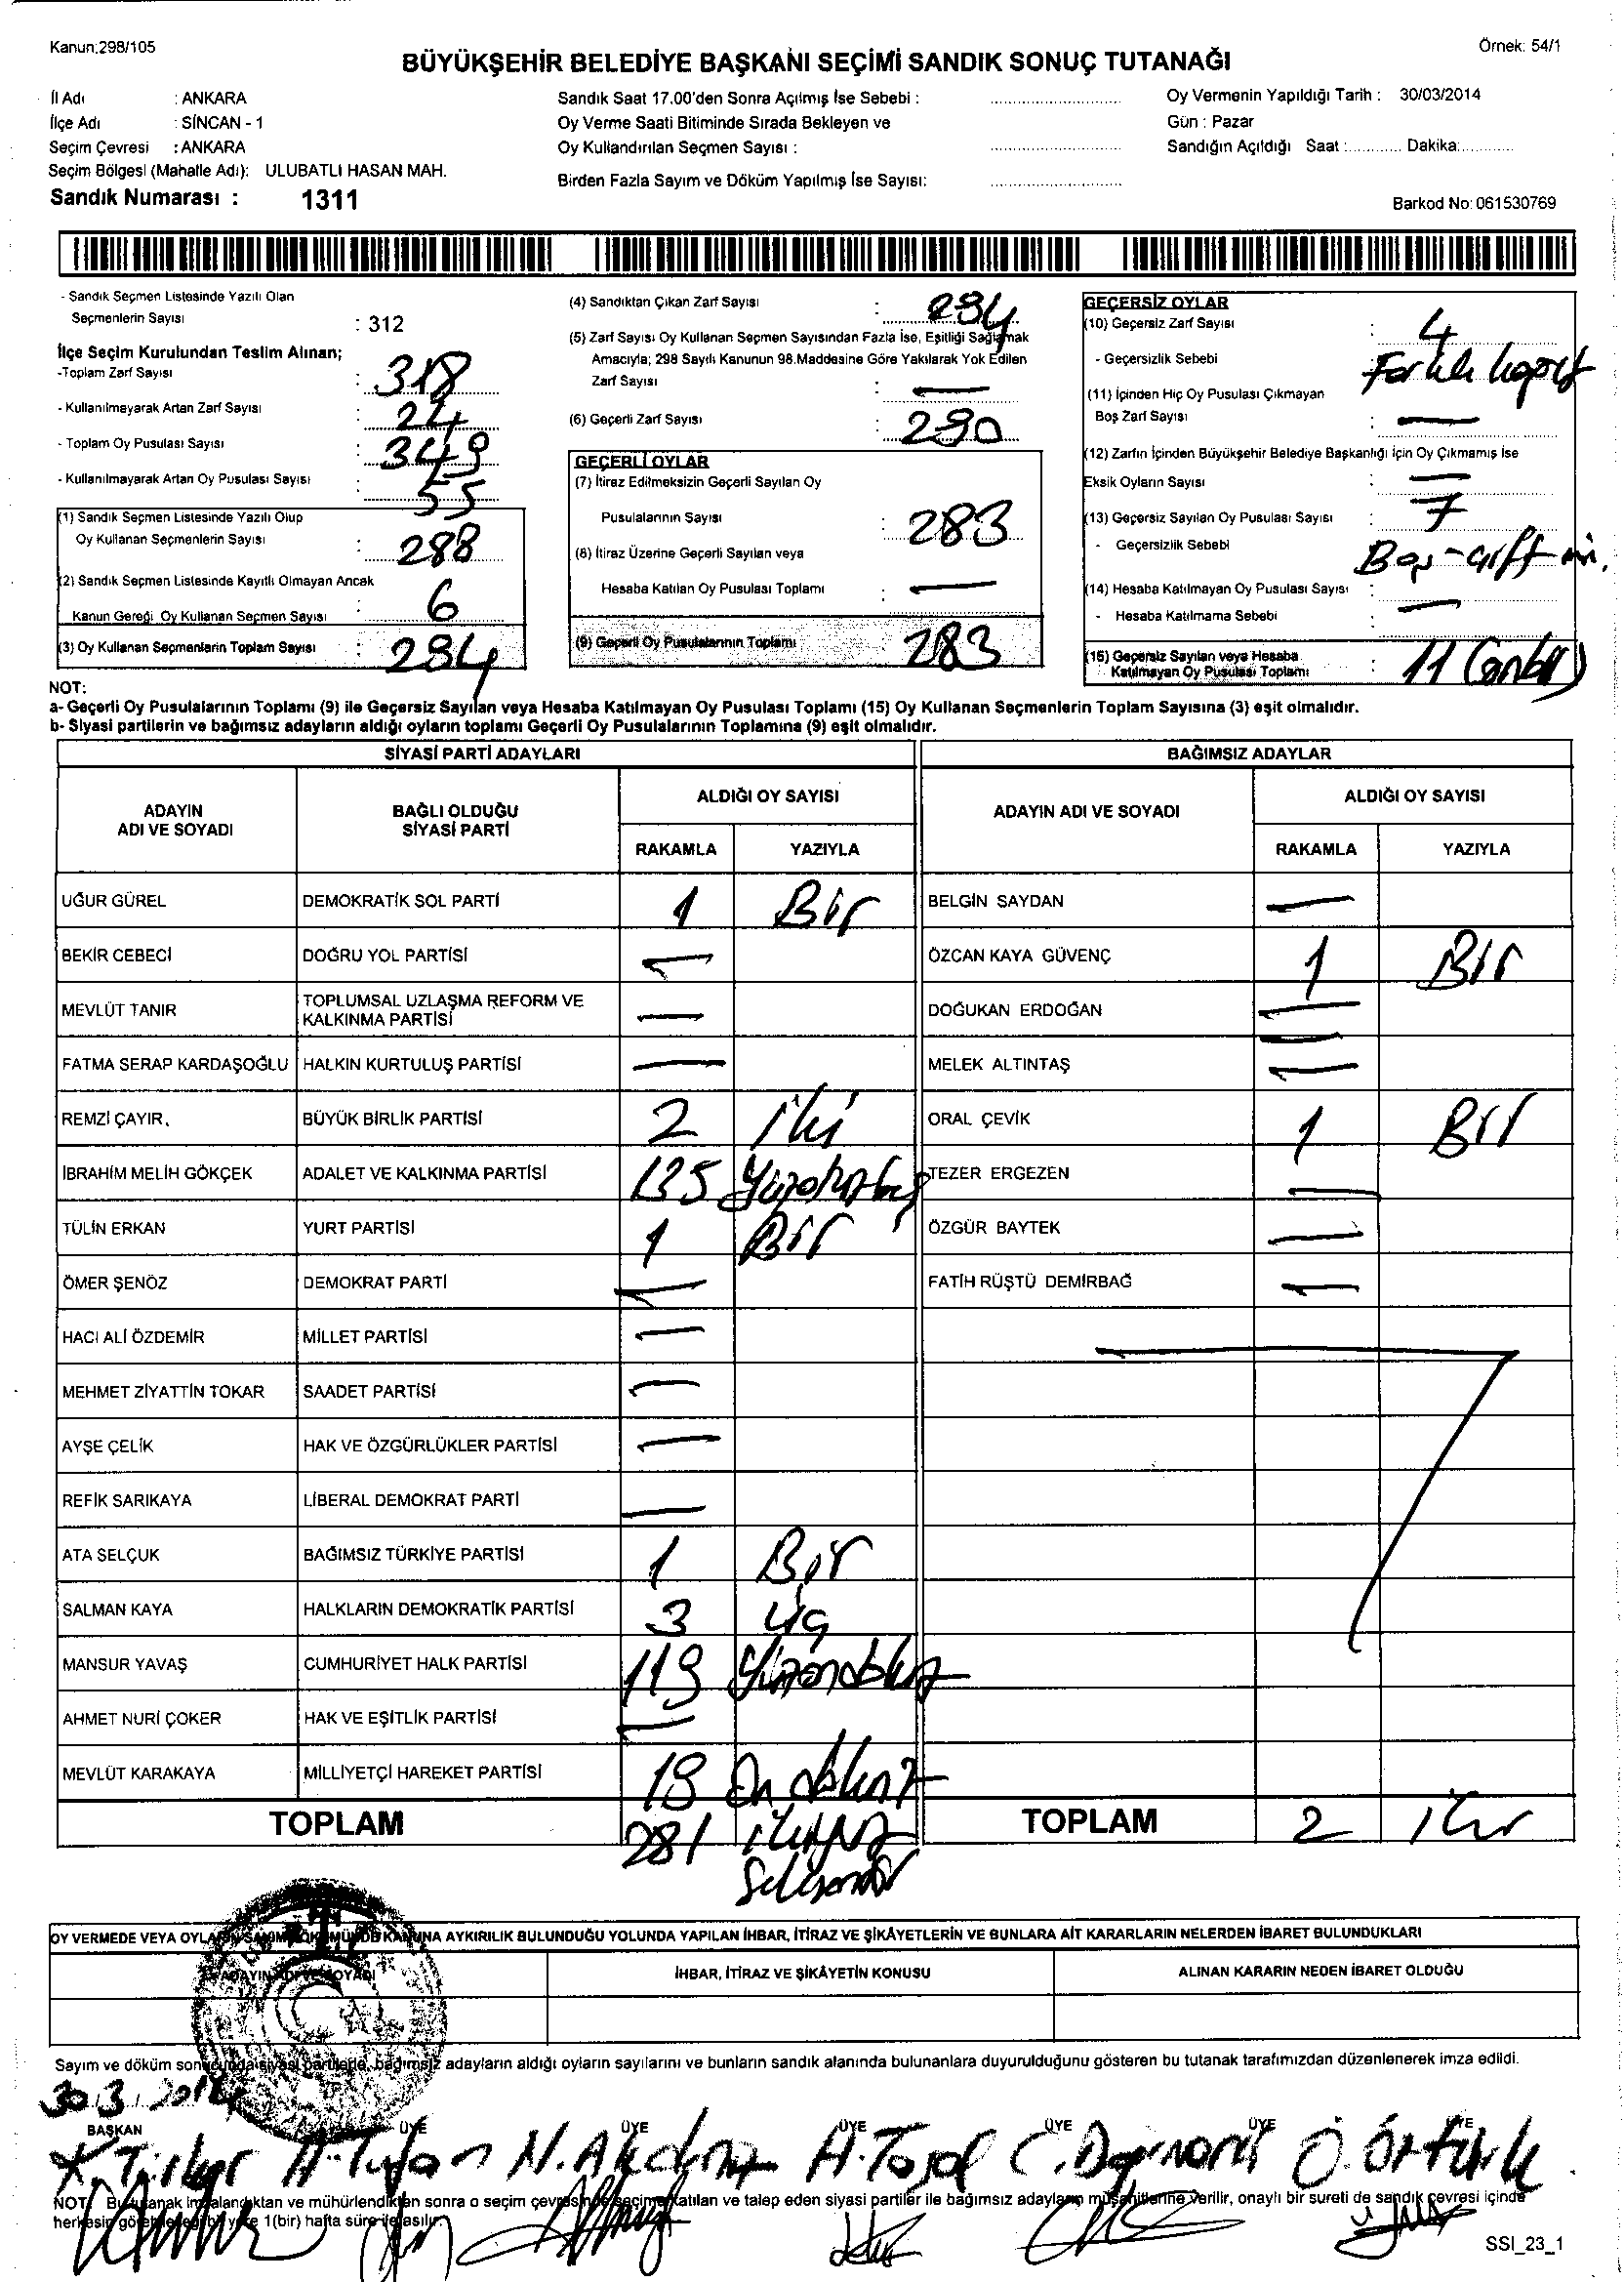 Kanun:298/105
Örnek: 54/1
BÜYÜKŞEHİR BELEDİYE BAŞKANI SEÇİMİ SANDIK SONUÇ TUTANAĞI
İl Adı : ANKARA
İlçe Adı : SİNCAN - 1
Seçim Çevresi : ANKARA
Seçim Bölgesi (Mahalle Adı): ULUBATLI HASAN MAH.
Sandık Numarası : 1311
Sandık Saat 17.00'den Sonra Açılmış İse Sebebi :
Oy Verme Saati Bitiminde Sırada Bekleyen ve
Oy Kullandırılan Seçmen Sayısı :
Birden Fazla Sayım ve Döküm Yapılmış İse Sayısı:
Oy Vermenin Yapıldığı Tarih : 30/03/2014
Gün : Pazar
Sandığın Açıldığı Saat :............ Dakika:............
Barkod No: 061530769
- Sandık Seçmen Listesinde Yazılı Olan
Seçmenlerin Sayısı : 312
İlçe Seçim Kurulundan Teslim Alınan;
-Toplam Zarf Sayısı : 318
- Kullanılmayarak Artan Zarf Sayısı : 24
- Toplam Oy Pusulası Sayısı : 349
- Kullanılmayarak Artan Oy Pusulası Sayısı : 55
(1) Sandık Seçmen Listesinde Yazılı Olup
Oy Kullanan Seçmenlerin Sayısı : 288
(2) Sandık Seçmen Listesinde Kayıtlı Olmayan Ancak
Kanun Gereği Oy Kullanan Seçmen Sayısı : 6
(3) Oy Kullanan Seçmenlerin Toplam Sayısı : 294
(4) Sandıktan Çıkan Zarf Sayısı : 294
(5) Zarf Sayısı Oy Kullanan Seçmen Sayısından Fazla İse, Eşitliği Sağlamak
Amacıyla; 298 Sayılı Kanunun 98.Maddesine Göre Yakılarak Yok Edilen
Zarf Sayısı : —
(6) Geçerli Zarf Sayısı : 290
GEÇERLİ OYLAR
(7) İtiraz Edilmeksizin Geçerli Sayılan Oy
Pusulalarının Sayısı : 283
(8) İtiraz Üzerine Geçerli Sayılan veya
Hesaba Katılan Oy Pusulası Toplamı : —
(9) Geçerli Oy Pusulalarının Toplamı : 283
GEÇERSİZ OYLAR
(10) Geçersiz Zarf Sayısı : 4
- Geçersizlik Sebebi : Farklı
(11) İçinden Hiç Oy Pusulası Çıkmayan
Boş Zarf Sayısı : —
(12) Zarfın İçinden Büyükşehir Belediye Başkanlığı İçin Oy Çıkmamış İse
Eksik Oyların Sayısı : —
(13) Geçersiz Sayılan Oy Pusulası Sayısı : 7
- Geçersizlik Sebebi : Boş-çift
(14) Hesaba Katılmayan Oy Pusulası Sayısı : —
- Hesaba Katılmama Sebebi :
(15) Geçersiz Sayılan veya Hesaba
Katılmayan Oy Pusulası Toplamı : 11 (onbir)
NOT:
a- Geçerli Oy Pusulalarının Toplamı (9) ile Geçersiz Sayılan veya Hesaba Katılmayan Oy Pusulası Toplamı (15) Oy Kullanan Seçmenlerin Toplam Sayısına (3) eşit olmalıdır.
b- Siyasi partilerin ve bağımsız adayların aldığı oyların toplamı Geçerli Oy Pusulalarının Toplamına (9) eşit olmalıdır.
SİYASİ PARTİ ADAYLARI
ADAYIN ADI VE SOYADI BAĞLI OLDUĞU SİYASİ PARTİ ALDIĞI OY SAYISI
RAKAMLA YAZIYLA
UĞUR GÜREL DEMOKRATİK SOL PARTİ 1 Bir
BEKİR CEBECİ DOĞRU YOL PARTİSİ —
MEVLÜT TANIR TOPLUMSAL UZLAŞMA REFORM VE KALKINMA PARTİSİ —
FATMA SERAP KARDAŞOĞLU HALKIN KURTULUŞ PARTİSİ —
REMZİ ÇAYIR. BÜYÜK BİRLİK PARTİSİ 2 iki
İBRAHİM MELİH GÖKÇEK ADALET VE KALKINMA PARTİSİ 135 Yüzotuzbeş
TÜLİN ERKAN YURT PARTİSİ 1 Bir
ÖMER ŞENÖZ DEMOKRAT PARTİ —
HACI ALİ ÖZDEMİR MİLLET PARTİSİ —
MEHMET ZİYATTİN TOKAR SAADET PARTİSİ —
AYŞE ÇELİK HAK VE ÖZGÜRLÜKLER PARTİSİ —
REFİK SARIKAYA LİBERAL DEMOKRAT PARTİ —
ATA SELÇUK BAĞIMSIZ TÜRKİYE PARTİSİ 1 Bir
SALMAN KAYA HALKLARIN DEMOKRATİK PARTİSİ 3 üç
MANSUR YAVAŞ CUMHURİYET HALK PARTİSİ 119 Yüzondokuz
AHMET NURİ ÇOKER HAK VE EŞİTLİK PARTİSİ —
MEVLÜT KARAKAYA MİLLİYETÇİ HAREKET PARTİSİ 19 Ondokuz
TOPLAM 281 ikiyüz
Seksenbir
BAĞIMSIZ ADAYLAR
ADAYIN ADI VE SOYADI ALDIĞI OY SAYISI
RAKAMLA YAZIYLA
BELGİN SAYDAN —
ÖZCAN KAYA GÜVENÇ 1 Bir
DOĞUKAN ERDOĞAN —
MELEK ALTINTAŞ —
ORAL ÇEVİK 1 Bir
TEZER ERGEZEN —
ÖZGÜR BAYTEK —
FATİH RÜŞTÜ DEMİRBAĞ —
TOPLAM 2 iki
OY VERMEDE VEYA OYLARIN SAYIM DÖKÜMÜNDE KANUNA AYKIRILIK BULUNDUĞU YOLUNDA YAPILAN İHBAR, İTİRAZ VE ŞİKÂYETLERİN VE BUNLARA AİT KARARLARIN NELERDEN İBARET BULUNDUKLARI
ADAYIN ADI VE SOYADI İHBAR, İTİRAZ VE ŞİKÂYETİN KONUSU ALINAN KARARIN NEDEN İBARET OLDUĞU
Sayım ve döküm sonucunda siyasi partilerle, bağımsız adayların aldığı oyların sayılarını ve bunların sandık alanında bulunanlara duyurulduğunu gösteren bu tutanak tarafımızdan düzenlenerek imza edildi.
30.3.2014
BAŞKAN ÜYE ÜYE ÜYE ÜYE ÜYE ÜYE
NOT: Bu tutanak imzalandıktan ve mühürlendikten sonra o seçim çevresinde seçime katılan ve talep eden siyasi partiler ile bağımsız adayların müşahitlerine verilir, onaylı bir sureti de sandık çevresi içinde
herkesin görebileceği bir yere 1(bir) hafta süre ile asılır.
SSI_23_1